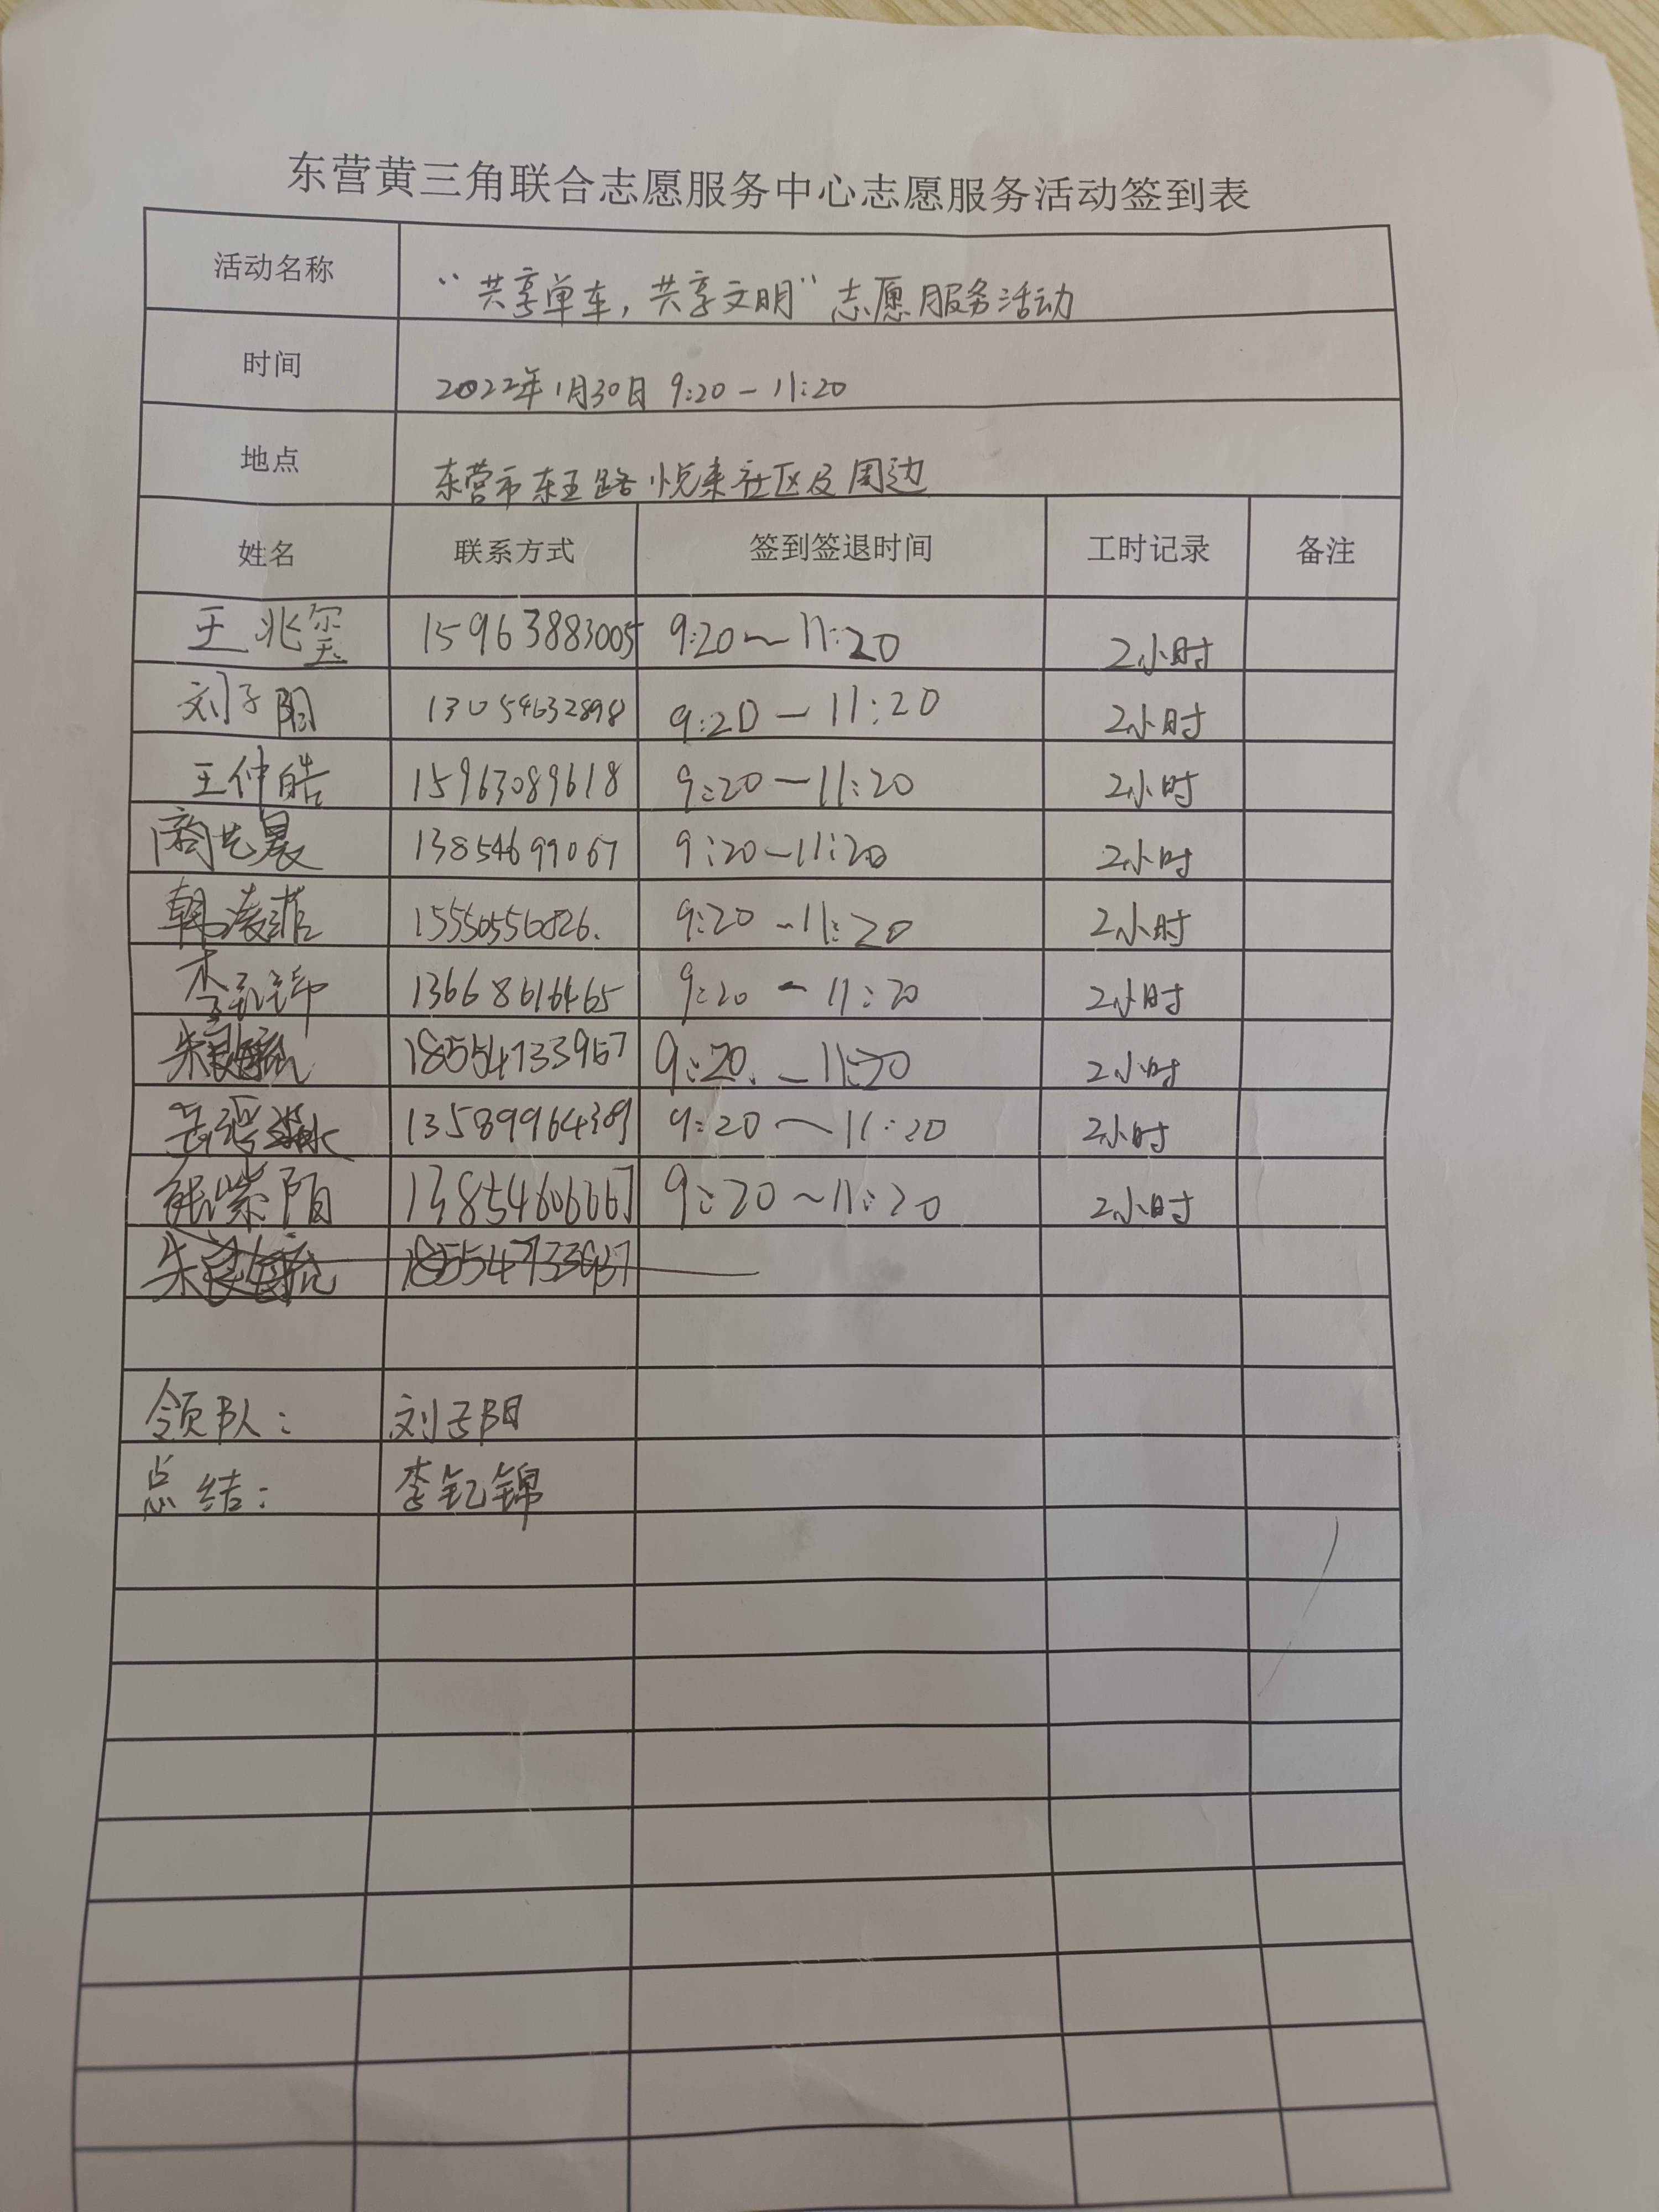 东营黄三角联合志愿服务中心志愿服务活动签到表
活动名称 “共享单车，共享文明”志愿服务活动
时间 2022年1月30日 9:20-11:20
地点 东营市东五路悦来社区及周边
姓名 联系方式 签到签退时间 工时记录 备注
王兆玺 15963883005 9:20~11:20 2小时
刘子阳 13054632898 9:20-11:20 2小时
王仲皓 15963089618 9:20-11:20 2小时
商艺晨 13854699067 9:20-11:20 2小时
韩凌菲 15550556826. 9:20-11:20 2小时
李钇锦 13668616465 9:20-11:20 2小时
朱 18554733967 9:20.-11:20 2小时
9:20~11:20 2小时
熊紫阳 9:20~11:20 2小时
朱
领队： 刘子阳
总结： 李钇锦